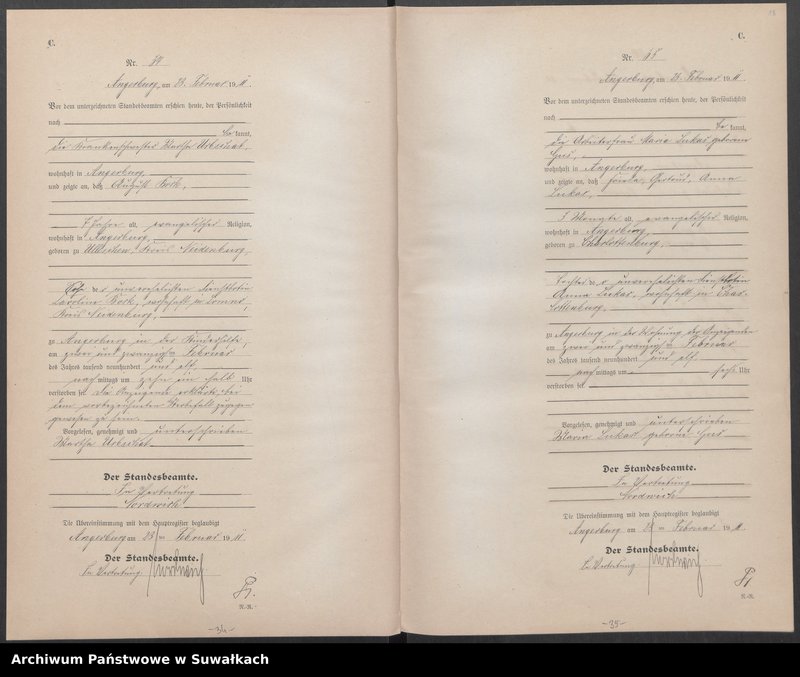 C.
Nr. 34
Angerburg, am 23. Februar 1911.
Vor dem unterzeichneten Standesbeamten erschien heute, der Persönlichkeit
nach
be kannt,
die Krankenschwester Martha
wohnhaft in Angerburg,
und zeigte an, daß August Bock,
7 Jahre alt, evangelischer Religion,
wohnhaft in Angerburg,
geboren zu Kreis Neidenburg,
Sohn der unverehelichten Dienstbotin
Caroline Bock, wohnhaft in
Kreis Neidenburg,
zu Angerburg in der
am zwei und zwanzigsten Februar
des Jahres tausend neunhundert und elf,
nachmittags um zehn ein halb Uhr
verstorben sei. Die Anzeigende erklärte, bei
dem vorbezeichneten Sterbefall zugegen
gewesen zu sein.
Vorgelesen, genehmigt und unterschrieben
Martha
Der Standesbeamte.
In Vertretung
Die Übereinstimmung mit dem Hauptregister beglaubigt
Angerburg am 23 ten Februar 1911.
Der Standesbeamte.
In Vertretung
N.-R.
-34-
C.
Nr. 35
Angerburg, am 23. Februar 1911.
Vor dem unterzeichneten Standesbeamten erschien heute, der Persönlichkeit
nach
be kannt,
die Arbeiterfrau Maria Lukas geborene
wohnhaft in Angerburg,
und zeigte an, daß Gertrud, Anna
Lukas,
Monate alt, evangelischer Religion,
wohnhaft in Angerburg,
geboren zu Charlottenburg,
Tochter der unverehelichten Dienstbotin
Anna Lukas, wohnhaft in Char-
lottenburg,
zu Angerburg in der Wohnung der Anzeigenden
am zwei und zwanzigsten Februar
des Jahres tausend neunhundert und elf,
nachmittags um sechs Uhr
verstorben sei
Vorgelesen, genehmigt und unterschrieben
Maria Lukas geborene
Der Standesbeamte.
In Vertretung
Die Übereinstimmung mit dem Hauptregister beglaubigt
Angerburg am 23 ten Februar 1911.
Der Standesbeamte.
In Vertretung
N.-R.
-35-
Archiwum Państwowe w Suwałkach